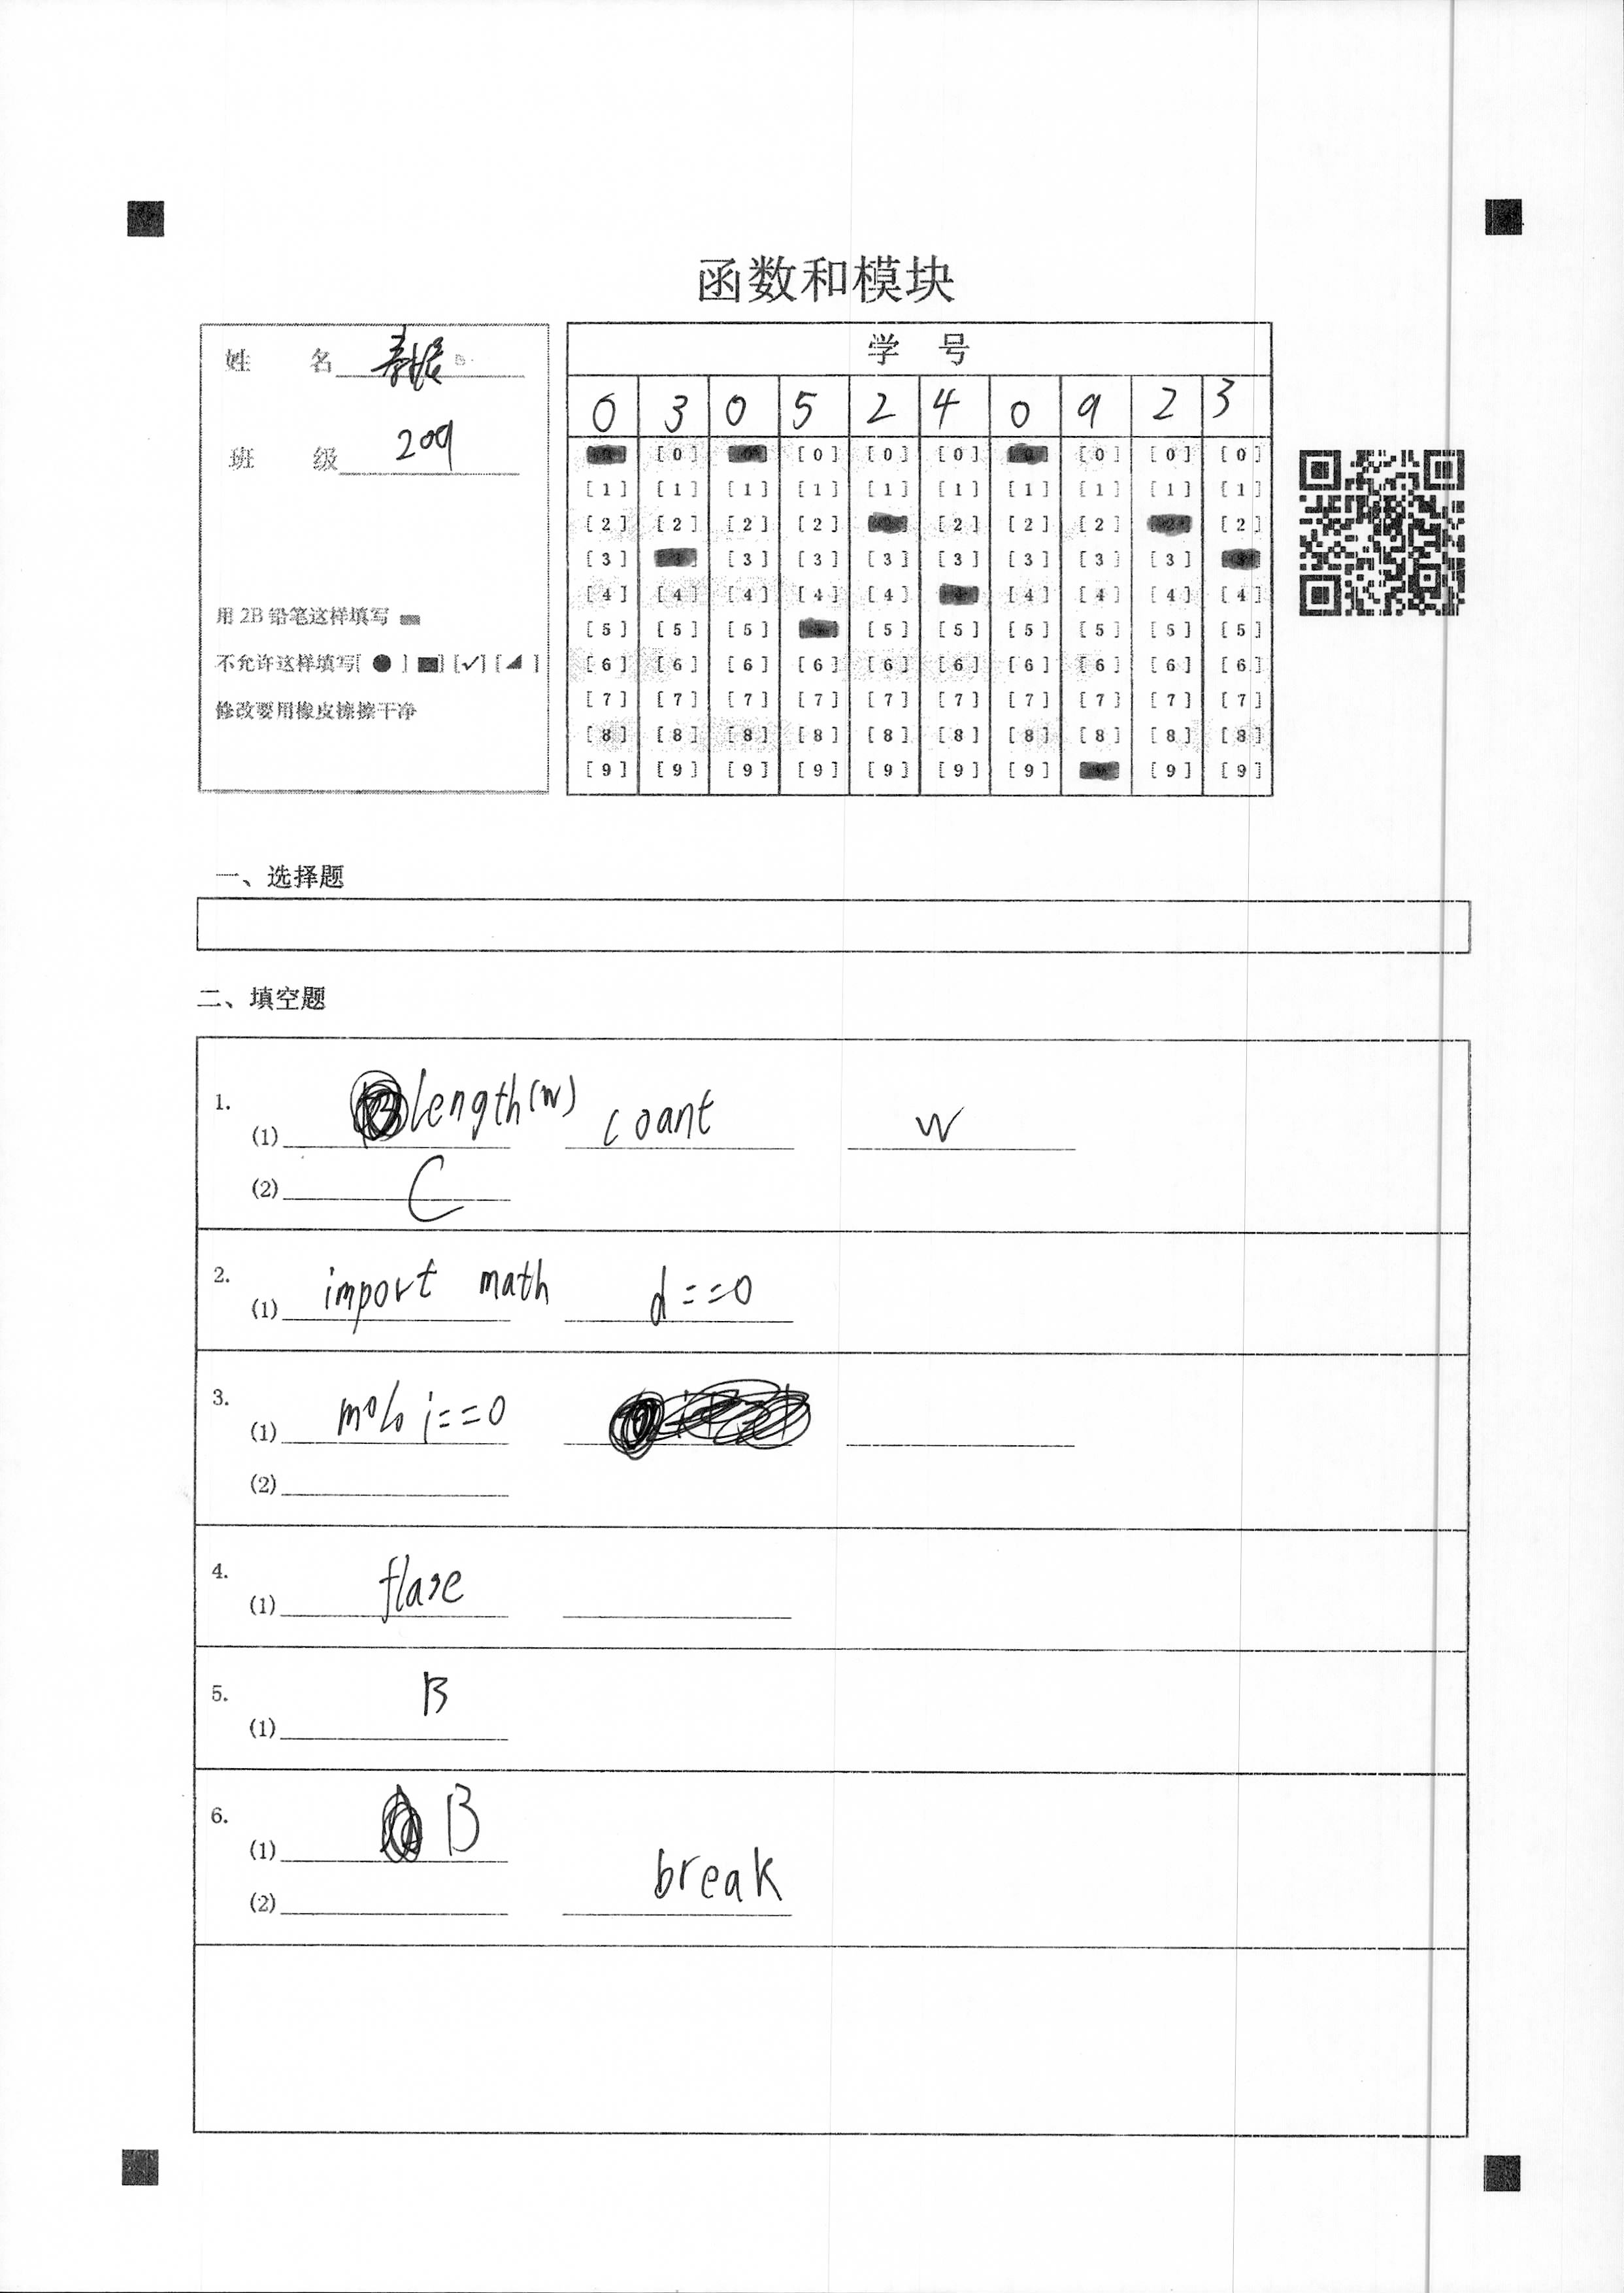 函数和模块
姓 名
班 级 209
用 2B 铅笔这样填写
不允许这样填写[ ● ] [■] [✓] [◢ ]
修改要用橡皮擦擦干净
学 号
0 3 0 5 2 4 0 9 2 3
[0] [0] [0] [0] [0] [0] [0] [0] [0] [0]
[1] [1] [1] [1] [1] [1] [1] [1] [1] [1]
[2] [2] [2] [2] [2] [2] [2] [2] [2] [2]
[3] [3] [3] [3] [3] [3] [3] [3] [3] [3]
[4] [4] [4] [4] [4] [4] [4] [4] [4] [4]
[5] [5] [5] [5] [5] [5] [5] [5] [5] [5]
[6] [6] [6] [6] [6] [6] [6] [6] [6] [6]
[7] [7] [7] [7] [7] [7] [7] [7] [7] [7]
[8] [8] [8] [8] [8] [8] [8] [8] [8] [8]
[9] [9] [9] [9] [9] [9] [9] [9] [9] [9]
一、选择题
二、填空题
1.
(1) length(w) coant w
(2) C
2.
(1) import math d==0
3.
(1) m%i==0
(2)
4.
(1) flase
5.
(1) B
6.
(1) B
(2) break